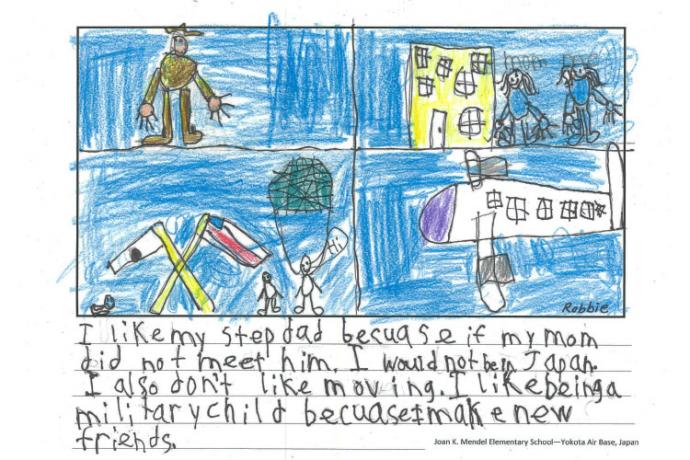 mom
Hi
Robbie
I like my step dad becuase if my mom
did not meet him. I would not be in Japan.
I also don't like moving. I like being a
military child becuase I make new
friends.
Joan K. Mendel Elementary School—Yokota Air Base, Japan